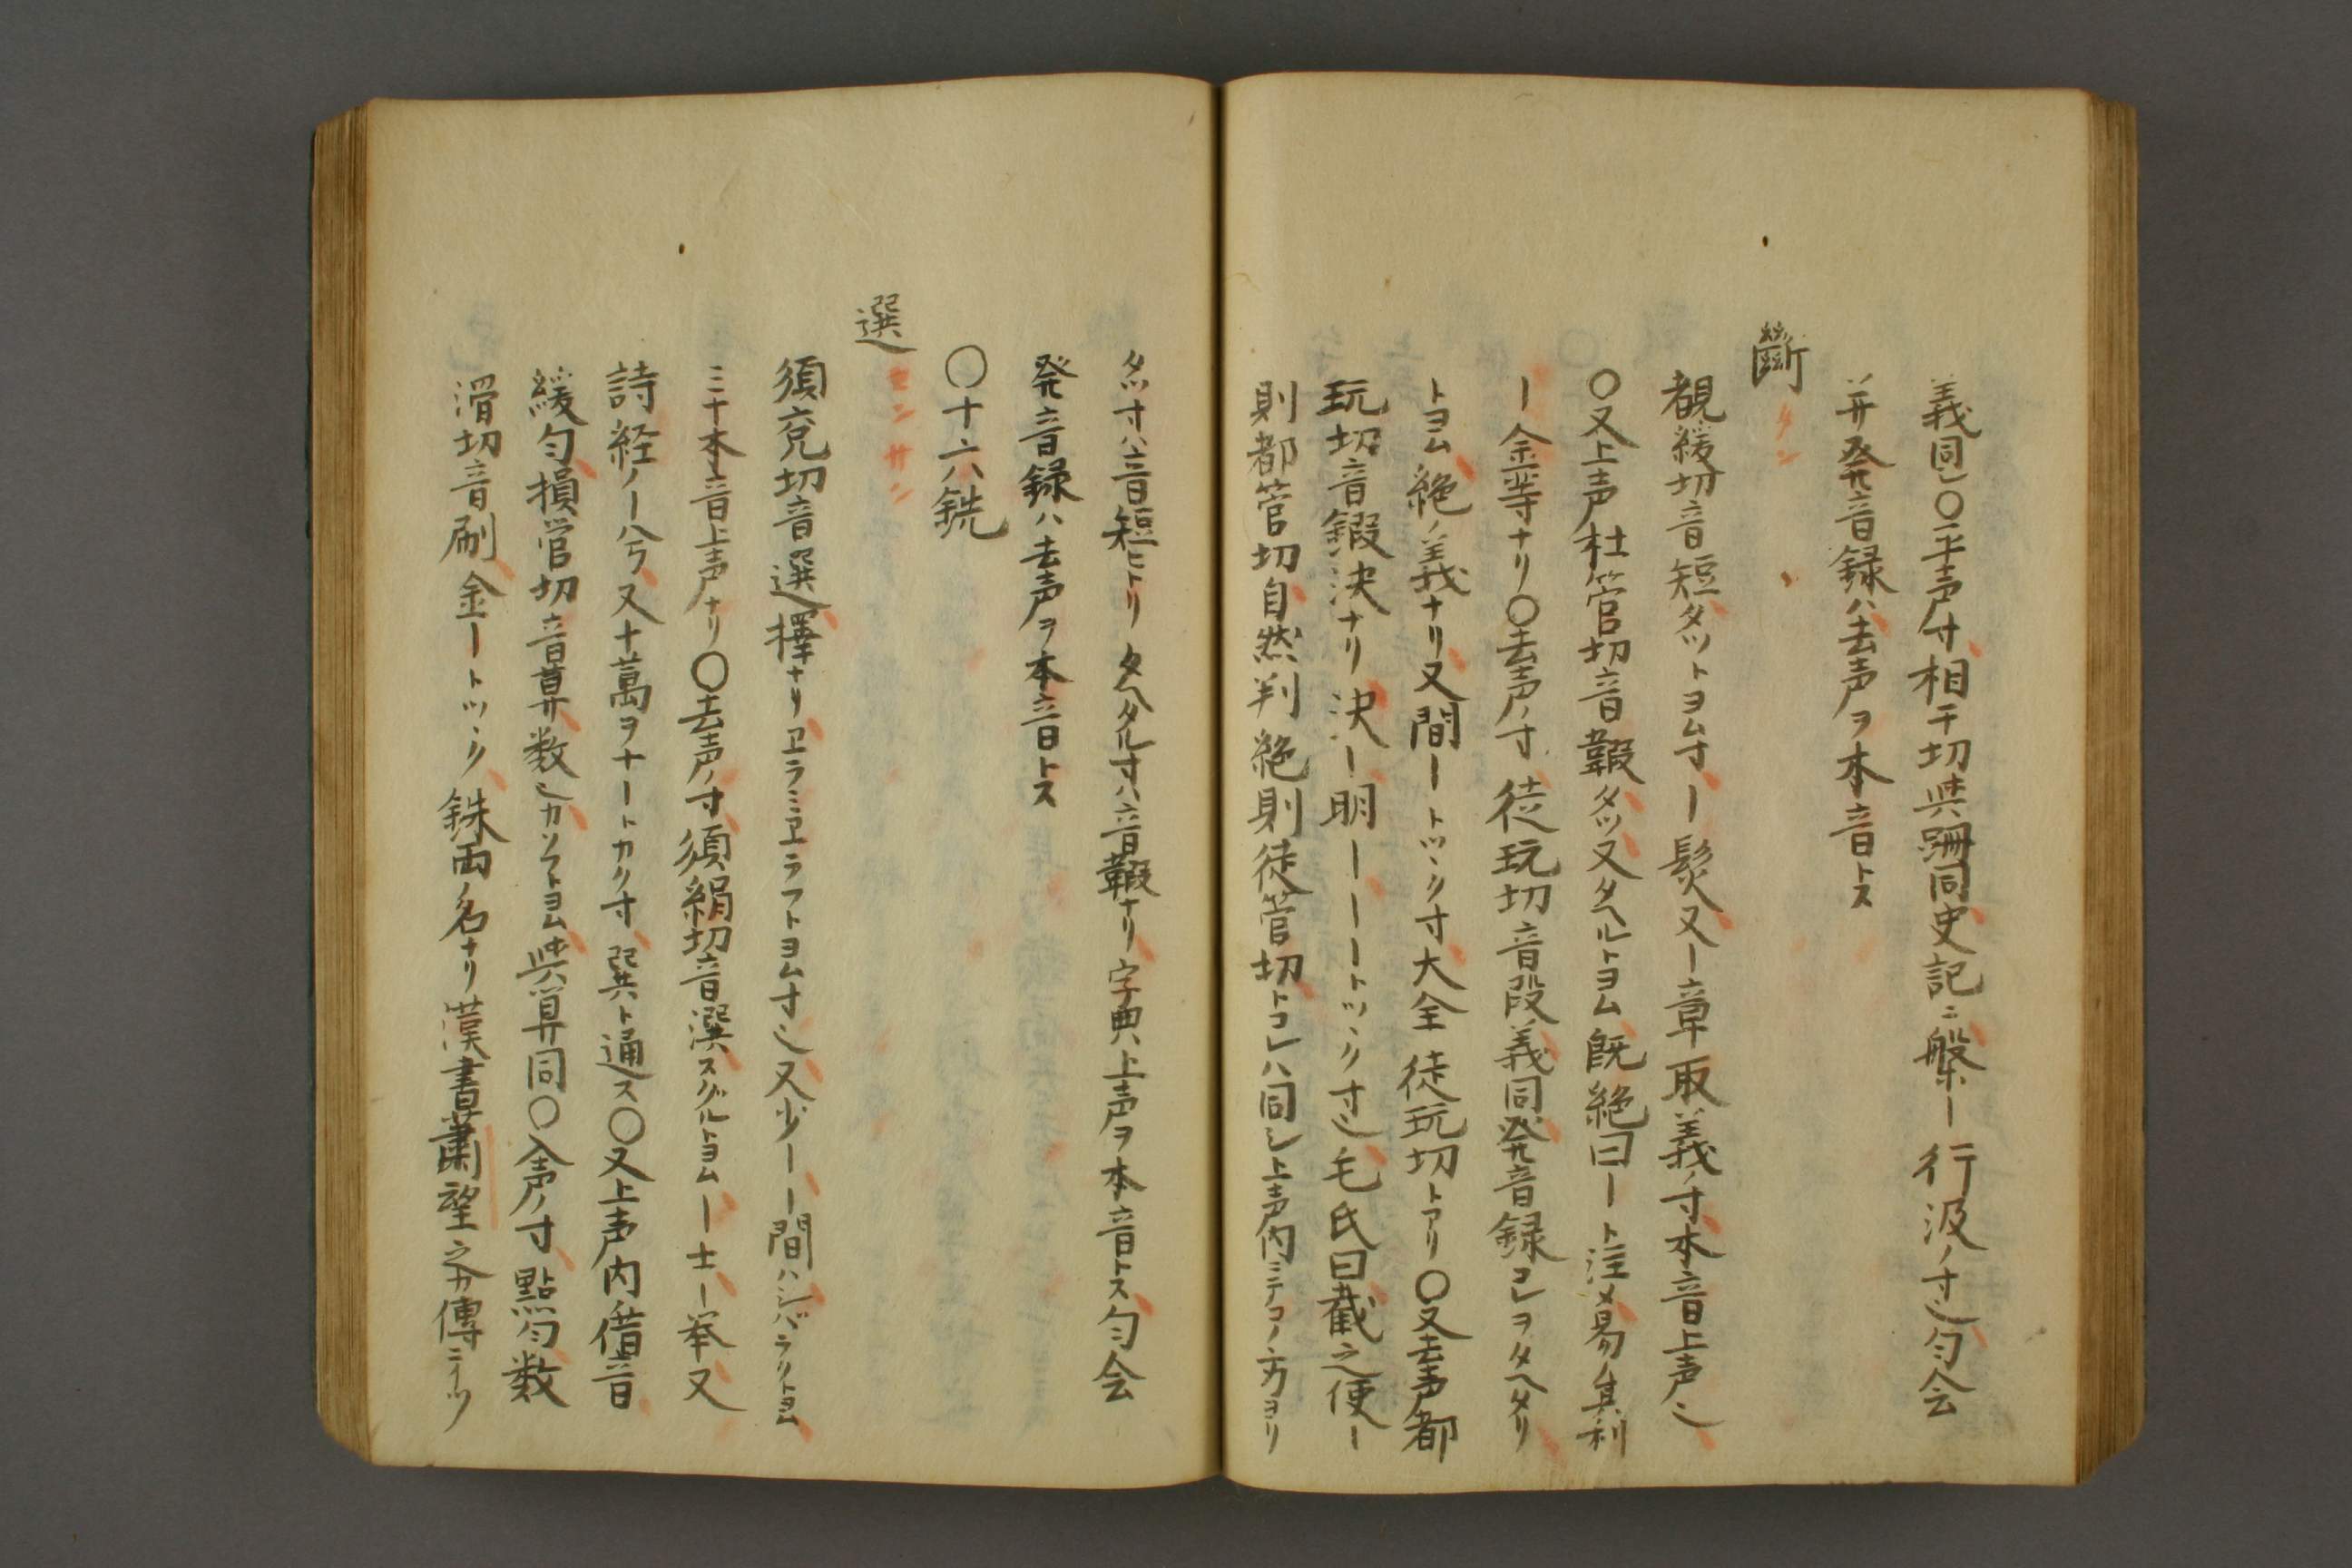 義同シ〇平声ノ寸相干切與跚同史記ニ槃ー行汲ノ寸也匀会
并発音録ハ去声ヲ本音トス
斷
タン
覩緩切音短タツトヨム寸ー髪又ー章取義ノ寸本音上声也
〇又上声杜管切音毈タツ又タヘルトヨム既絶曰ート注メ易ノ其利
ー金等ナリ〇去声ノ寸徒玩切音段義同発音録コレヲタヘタリ
トヨム絶ノ義ナリ又間ートツヽク寸大全徒玩切トアリ〇又去声都
玩切音鍛決ナリ決ー明ーーートツヽク寸也毛氏曰截之使ー
則都管切自然判絶則徒管切トコレハ同シ上声内ニテコノ方ヨリ
タツ寸ハ音短ヒトリタヘタル寸ハ音毈ナリ字典ハ上声ヲ本音トス匀会
発音録ハ去声ヲ本音トス
〇十六銑
選
センサン
須兗切音選擇ナリヱラミヱラフトヨム寸也又少ーー間ハシバラクトヨム
ミナ本音上声ナリ〇去声ノ寸須絹切音潠スグルトヨムー士ー挙又
詩経ノー兮又十萬ヲナートカク寸巽ト通ス〇又上声内借音
緩匀損管切音算数也カソフトヨム與算同〇入声ノ寸點匀数
滑切音刷金ートツヽク銖両ノ名ナリ漢書蕭望之カ傳ニイツ